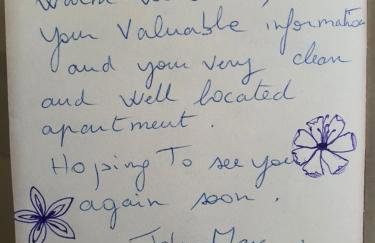 your valuable information
and your very clean
and well located
apartment.
Hoping To see you
again soon.